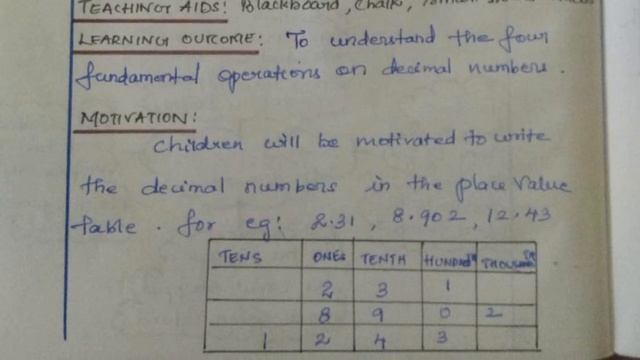 TEACHING AIDS: Blackboard, chalk,
LEARNING OUTCOME: To understand the four
fundamental operations on decimal numbers.
MOTIVATION:
Children will be motivated to write
the decimal numbers in the place value
table. for eg: 2.31, 8.902, 12.43
TENS ONES TENTH HUNDREDTH
2 3 1
8 9 0 2
1 2 4 3